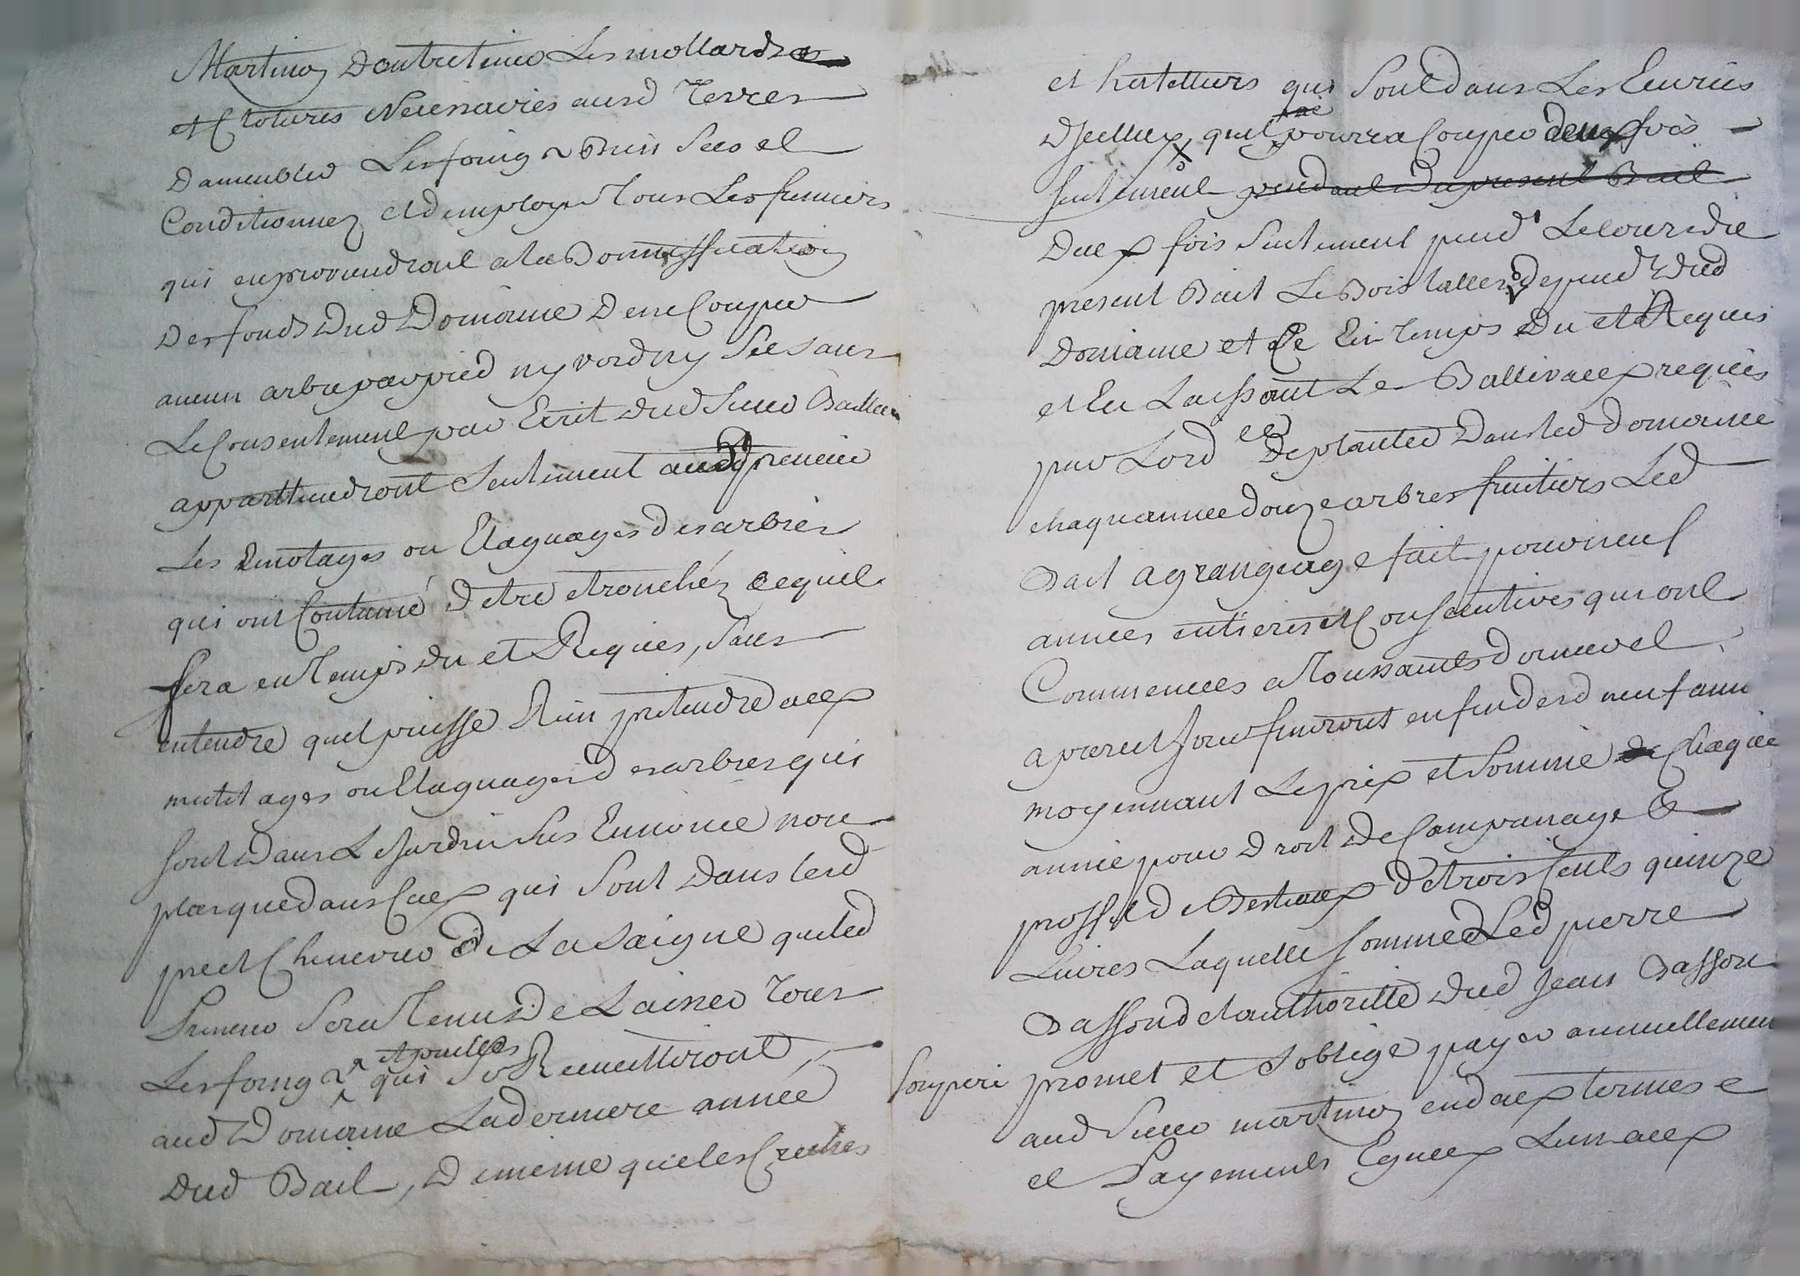 Martinon D'entretenir Les mollards
et Clotures Necessaires ausd Terres
D'ameubler Les foins Bien Secs et
Conditionnez et d'employer Tous Les fumiers
qui en proviendront a la Bonniffication
Des fonds Dud Domaine De ne Couper
aucun arbre par pied ny verd ny Sec Sans
Le Consentement par Ecrit dud Sieur Bailleur
appartiendront Seulement aud preneur
Les Emotages ou Elaguages des arbres
qui ont Coutumé D'etre etronchéz ce quil
fera en Temps Du et Requis, Sans
entendre quil puisse Rien pretendre aux
mutilages ou Elaguages des arbres qui
sont Dans Le Jardin
plus que dans Ceux qui Sont Dans lesd
pre et Cheneviere De La Saigne que led
Preneur Sera Tenus De Laisser Tous
Les foins et pailles qui Se Recueilliront
aud Domaine La derniere année
Dud Bail, De meme que les Creches
et hateliers qui Sont dans Les Ecuries
D'jcelluy, quil ne pourra Couper deux fois
seulement pendant Du present Bail
Deux fois Seulement pend^t Le cours du
present Bail Le Bois Tallier Depend^t Dud
Domaine et Ce En Temps Du et Requis
et En Laissant Le Balliveaux requis
par Lord^ce De planter Dans led domaine
chaque année douze arbres fruitiers Led
Bail a grangeage fait pour neuf
années entieres et Consecutives qui ont
Commencées a Toussaints dernier et
a pareil Jour finiront en fin desd neuf années
moyennant Le prix et Somme de Chaque
année pour Droit De Campanage &
proffit de Bestiaux De trois Cents quinze
Livres Laquelle Somme Led pierre
Dasson de l'authorité Dud Jean Dasson
Son pere promet et S'oblige payer annuellement
aud Sieur martinon en deux termes
et Payements Egaux